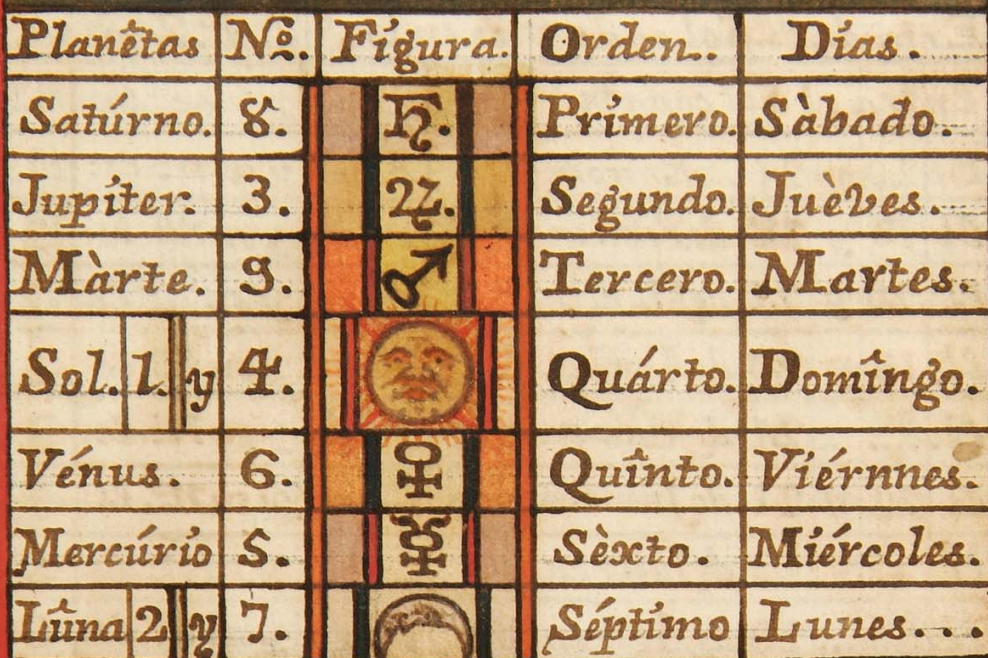 Planêtas Nº. Figura. Orden. Días.
Satúrno. 8. ♄. Prímero. Sàbado.
Jupíter. 3. ♃. Segundo. Juèves.
Màrte. 9. ♂ Tercero. Martes.
Sol. 1. y 4. Quárto. Domîngo.
Vénus. 6. ♀ Quînto. Viérnnes.
Mercúrio 5. ☿ Sèxto. Miércoles.
Lûna 2 y 7. Séptimo Lunes...